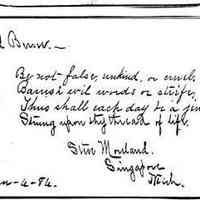 Be not false, unkind, or cruel,
Banish evil words or strife,
Thus shall each day be a
Strung upon thy thread of life.
Singapore
Mich.
-4-84.